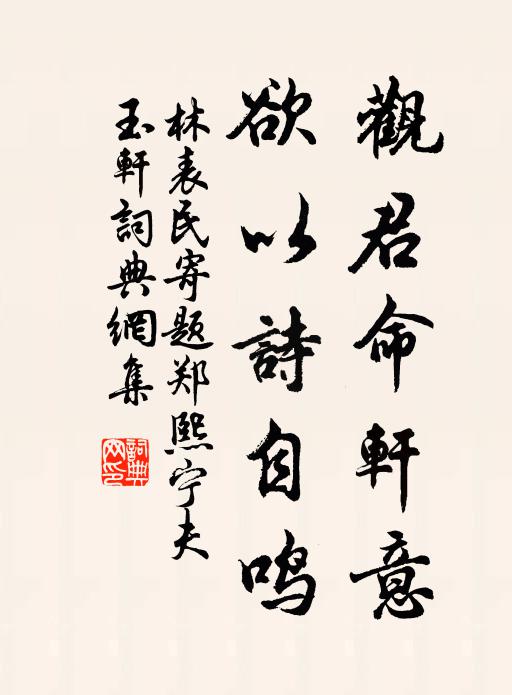 觀君命軒意
欲以詩自鳴
林表民寄題郑熙宁夫
玉軒詞典網集
詞典網印